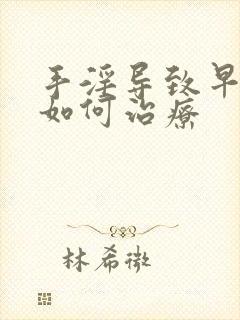 手淫导致早
如何治疗
林希微